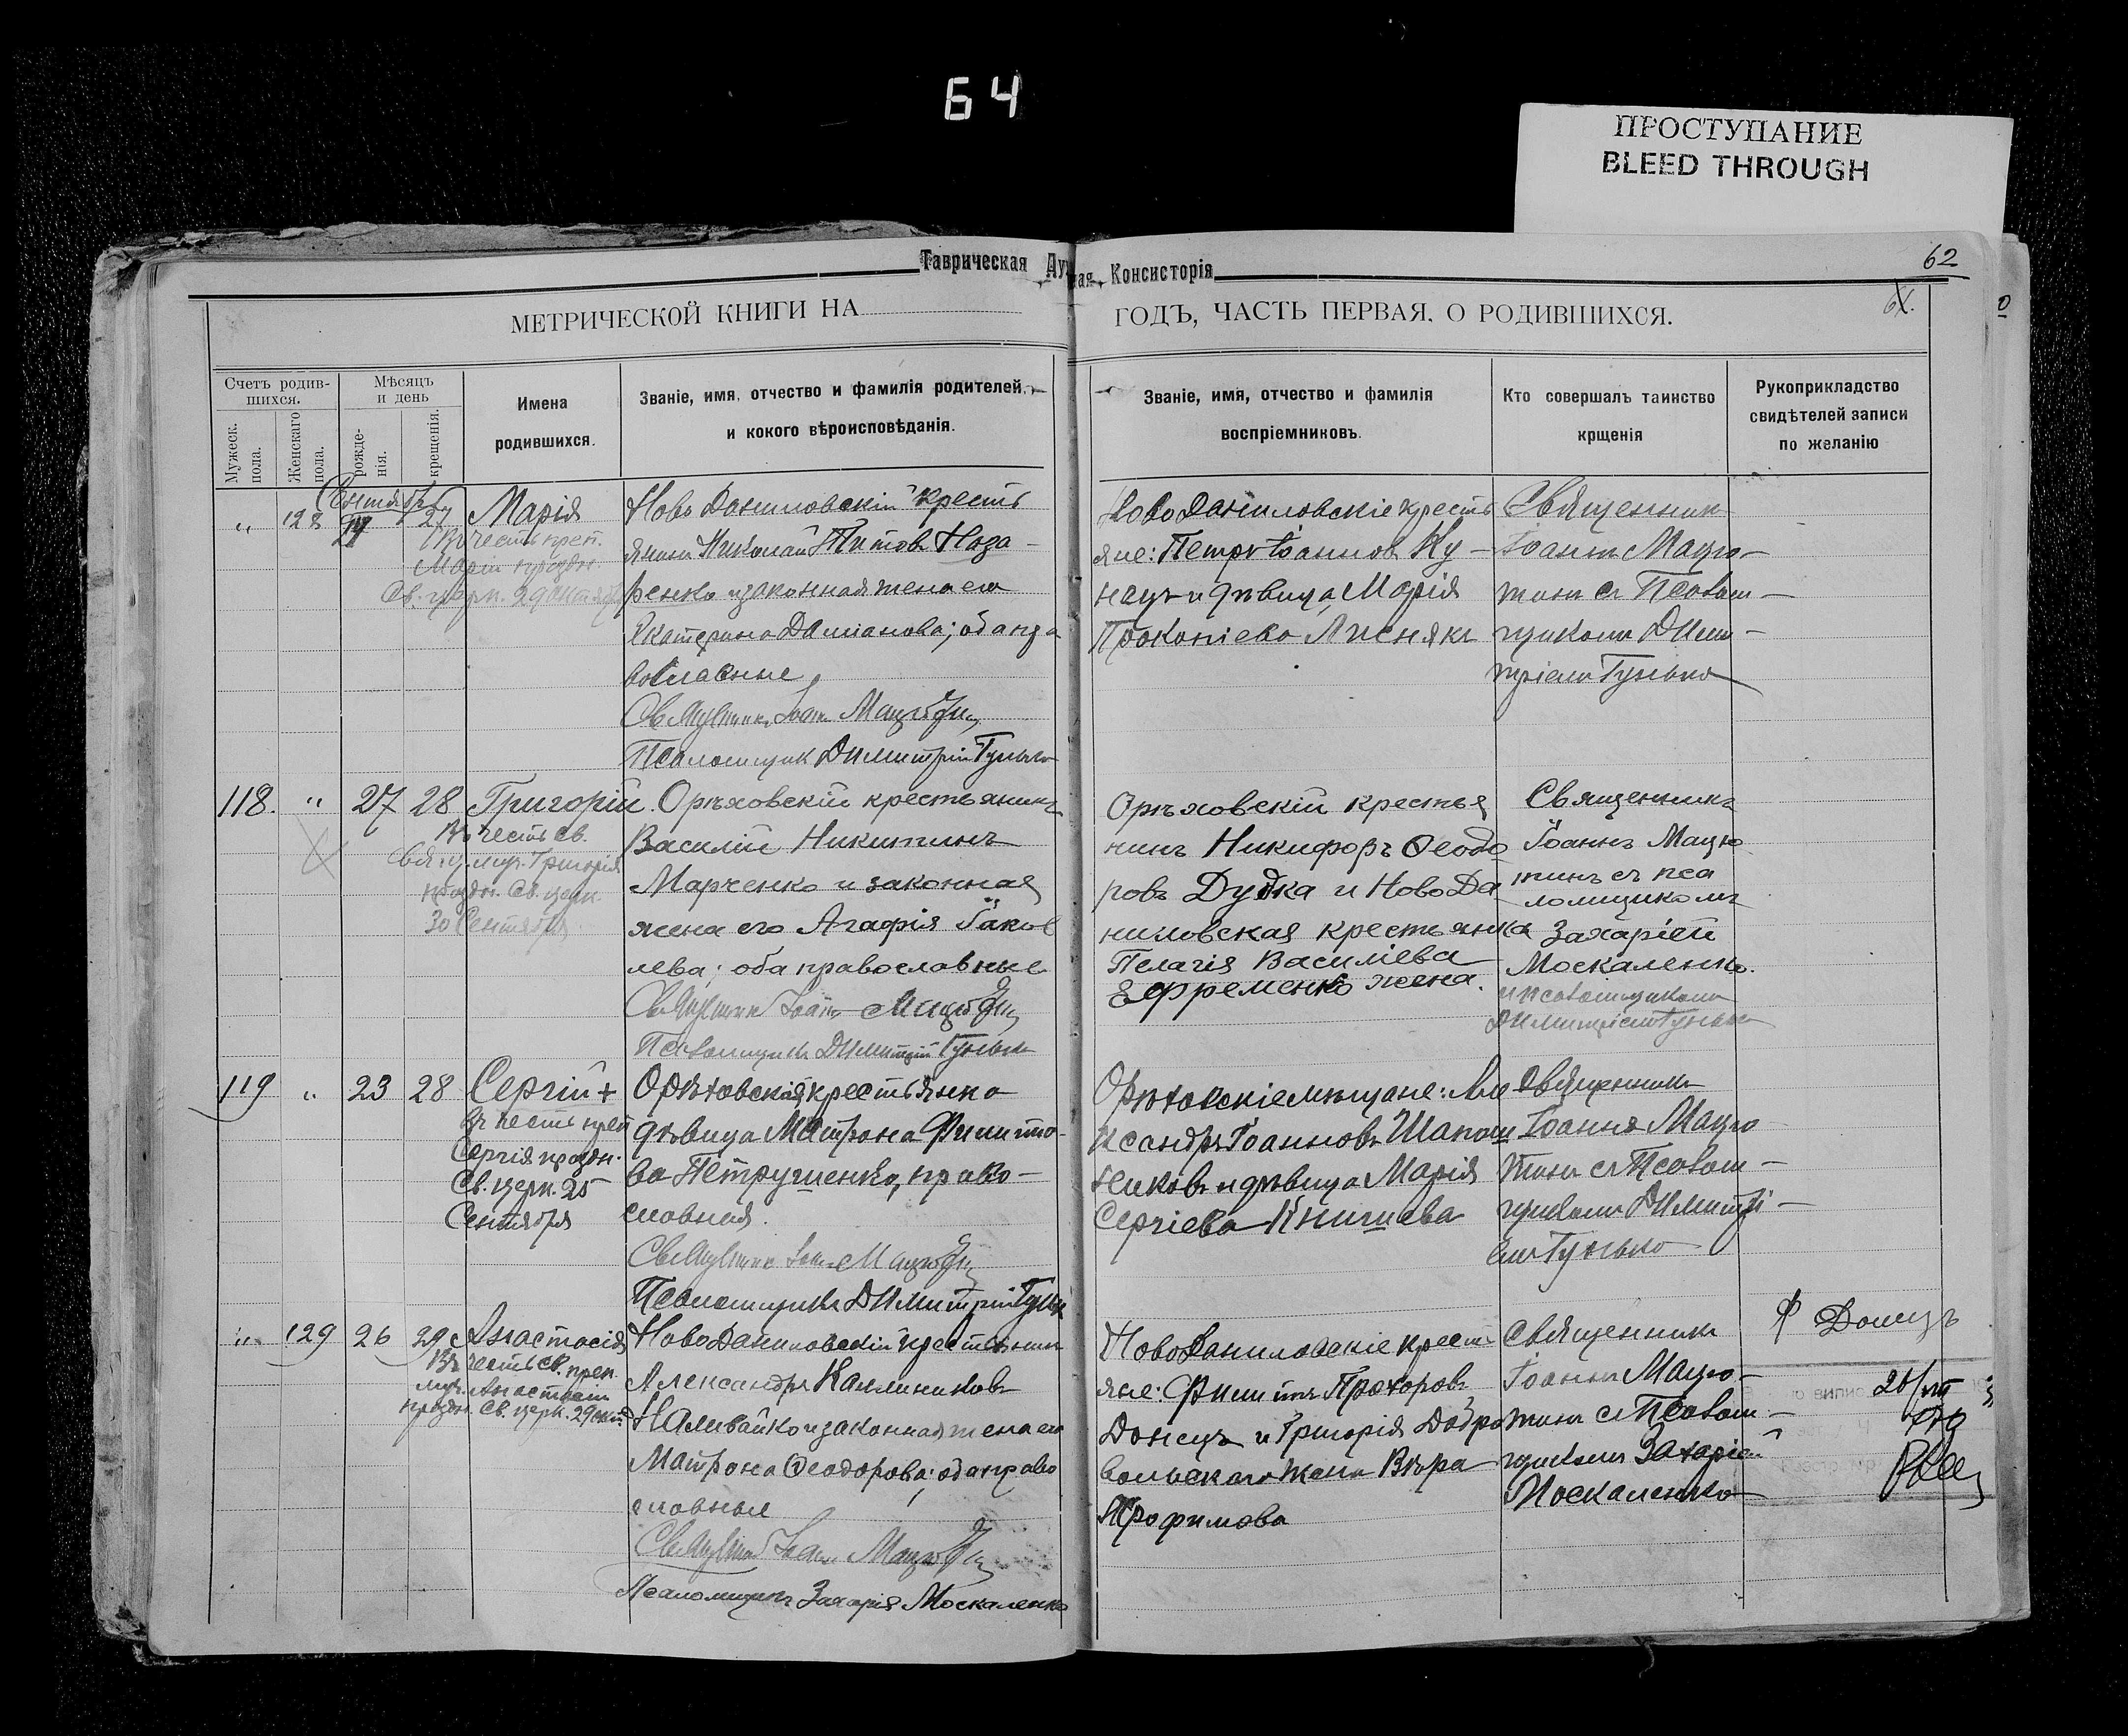 64
ПРОСТУПАНИЕ
BLEED THROUGH
Таврическая Духовная Консисторія
62
МЕТРИЧЕСКОЙ КНИГИ НА ГОДЪ, ЧАСТЬ ПЕРВАЯ, О РОДИВШИХСЯ.
Счетъ родив-
шихся.
Мужеск.
пола.
Женскаго
пола.
Мѣсяцъ
и день
рожде-
нія.
крещенія.
Имена
родившихся.
Званіе, имя, отчество и фамилія родителей,
и кокого вѣроисповѣданія.
Званіе, имя, отчество и фамилія
воспріемниковъ.
Кто совершалъ таинство
крщенія
Рукоприкладство
свидѣтелей записи
по желанію
Сентябрь
„ 128 27 Марія
Въ честь преп.
Маріи праздн.
Св. церк. 29 октября
Ново Даниловскій кресть
янинъ Николай Титовъ Наза-
ренко и законная жена его
Екатерина Даміанова; оба пра
вославные
Священникъ Іоан. Мацютин
Псаломщик Димитрій Гунько
НовоДаниловскіе кресть
яне: Петръ Іоанновъ Ку-
нацъ и дѣвица Марія
Прокопіева Лиснякъ
Священникъ
Іоаннъ Мацю-
тинъ съ Псалом-
щикомъ Дими-
тріемъ Гунько
118. „ 27 28 Григорій
Въ честь св.
Свящ. муч. Григорія
праздн. Св. церк.
30 Сентября
Орѣховскій крестьянинъ
Василій Никитинъ
Марченко и законная
жена его Агафія Іаков
лева; оба православные
Священник Іоанн Мацютин
Псаломщикъ Димитрій Гунько
Орѣховскій крестья
нинъ Никифоръ Ѳеодо
ровъ Дудка и НовоДа
ниловская крестьянка
Пелагія Василіева
Ефременко жена.
Священникъ
Іоаннъ Мацю
тинъ съ пса
ломщикомъ
Захаріей
Москаленко.
и псаломщикомъ
Димитріемъ Гунько
119 „ 23 28 Сергій +
Въ честь преп
Сергія праздн.
Св. церк. 25
Сентября
Орѣховская крестьянка
дѣвица Матрона Филиппо-
ва Петрушенко, право-
славная.
Священник Іоан Мацютин
Псаломщикъ Димитрій Гунько
Орѣховскіе мѣщане: Але
ксандръ Іоанновъ Шапош
никовъ и дѣвица Марія
Сергіева Книшева
Священникъ
Іоаннъ Мацю
тинъ съ Псалом-
щикомъ Димитрі-
емъ Гунько
„ 129 26 29 Анастасія
Въ честь св. преп.
муч. Анастасіи
праздн. Св. церк. 29 окт.
НовоДаниловскій крестьянинъ
Александръ Каллиниковъ
Наливайко и законная жена его
Матрона Ѳеодорова; оба право
славные
Священник Іоан. Мацютин
Псаломщикъ Захарія Москаленко
НовоДаниловскіе кресть
яне: Филиппъ Прохоровъ
Донецъ и Григорія Добро
вольскаго жена Вѣра
Трофимова
Священникъ
Іоаннъ Мацю-
тинъ съ Псалом-
щикомъ Захаріей
Москаленко
Ф Донецъ